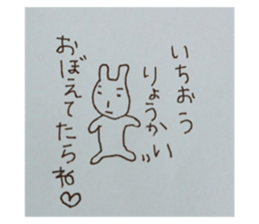 いちおう
りょうかい
おぼえてたらね♡